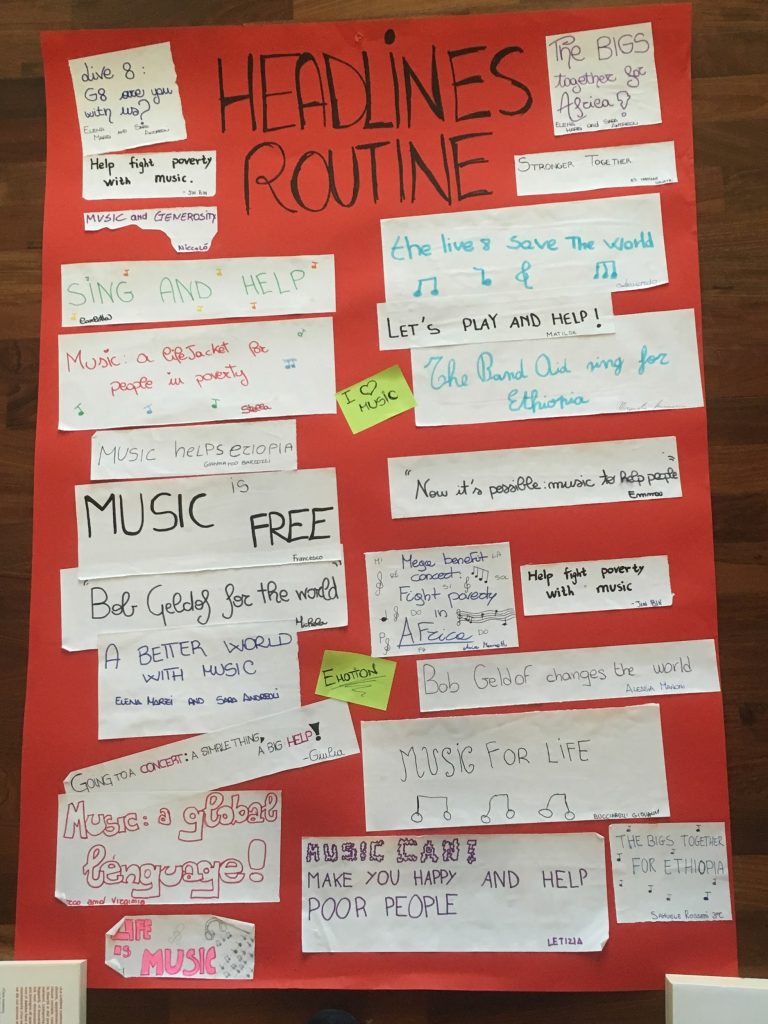 HEADLINES
ROUTINE
Live 8:
G8 are you
with us?
ELENA
MARZI AND SARA
ANDREOLI
Help fight poverty
with music.
- JIN BIN
MUSIC and GENEROSITY
NICCOLÓ
SING AND HELP
Music: a lifeJacket for
people in poverty
Stella
MUSIC HELPS ETIOPIA
MUSIC is
FREE
Francesco
"Bob Geldof for the world"
Michela
A BETTER WORLD
WITH MUSIC
ELENA MARZI AND SARA ANDREOLI
GOING TO A CONCERT: A SIMPLE THING,
A BIG HELP!
-Giulia
Music: a global
lenguage!
and Virginia
LIFE
is
MUSIC
The BIGS
together for
Africa
ELENA
MARZI and SARA
ANDREOLI
STRONGER TOGETHER
the live 8 save The world
LET'S PLAY AND HELP!
MATILDE
The Band Aid sing for
Ethiopia
I ♡
MUSIC
"Now it's possible: music to help people"
Emma
Mega benefit
concert:
Fight poverty
in
AFrica
MI
RE
LA
SOL
SI
DO
FA
DO
Help fight poverty
with music
- JIN BIN
EMOTION
Bob Geldof changes the world
ALESSIA MARONI
MUSIC FOR LIFE
MUSIC CAN!
MAKE YOU HAPPY AND HELP
POOR PEOPLE
LETIZIA
THE BIGS TOGETHER
FOR ETHIOPIA